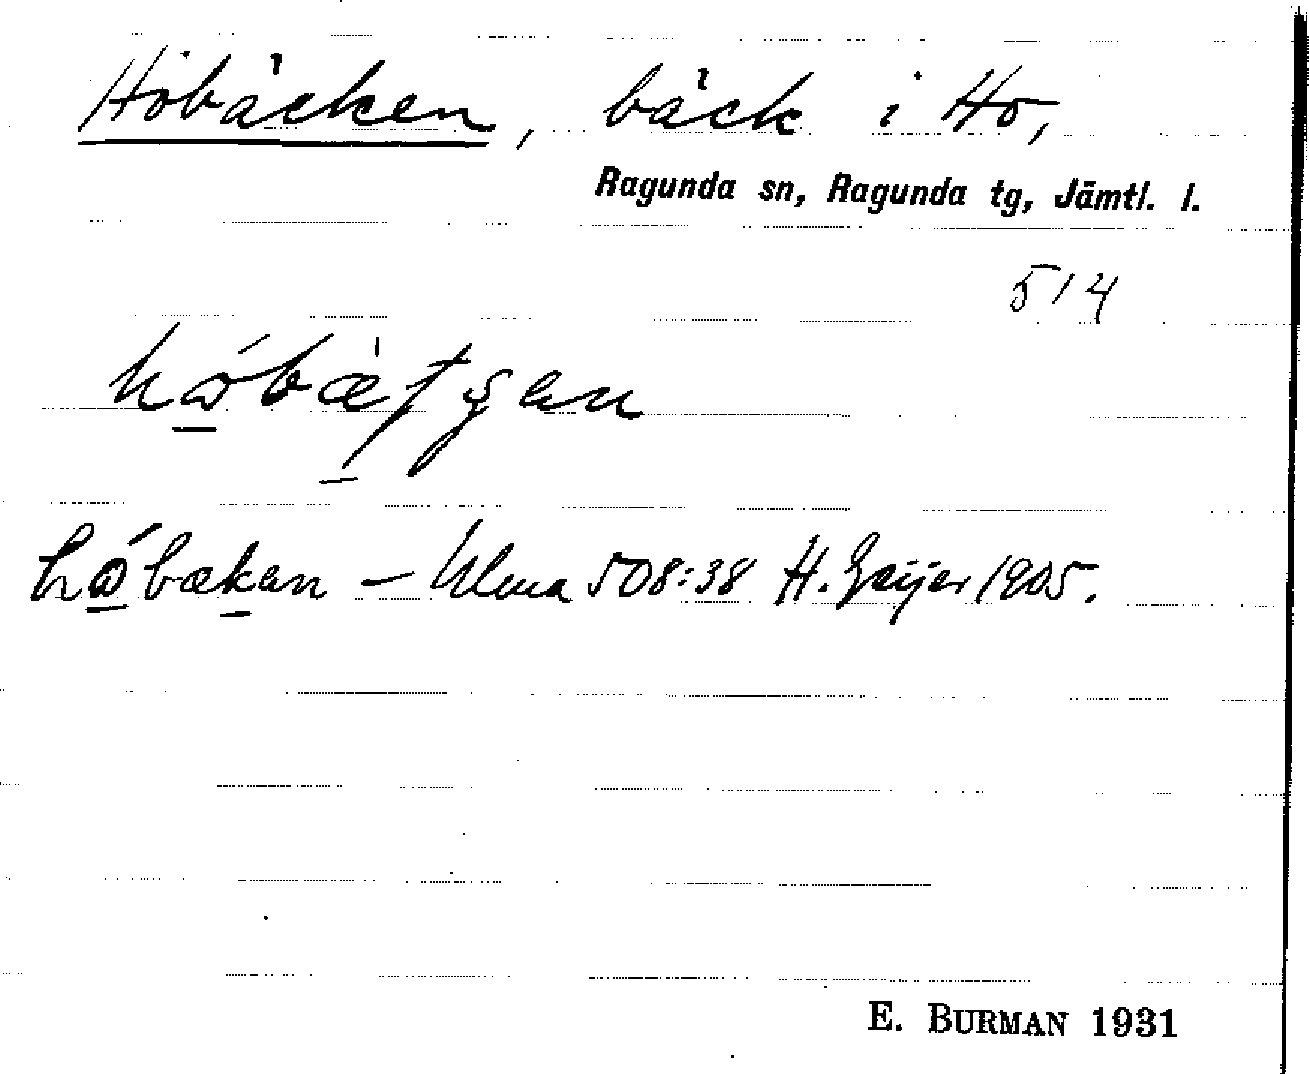 Höbäcken, bäck i Ho,
Ragunda sn, Ragunda tg, Jämtl. l.
514
– Ulma 508:38 H. Geijer 1905.
E. BURMAN 1931